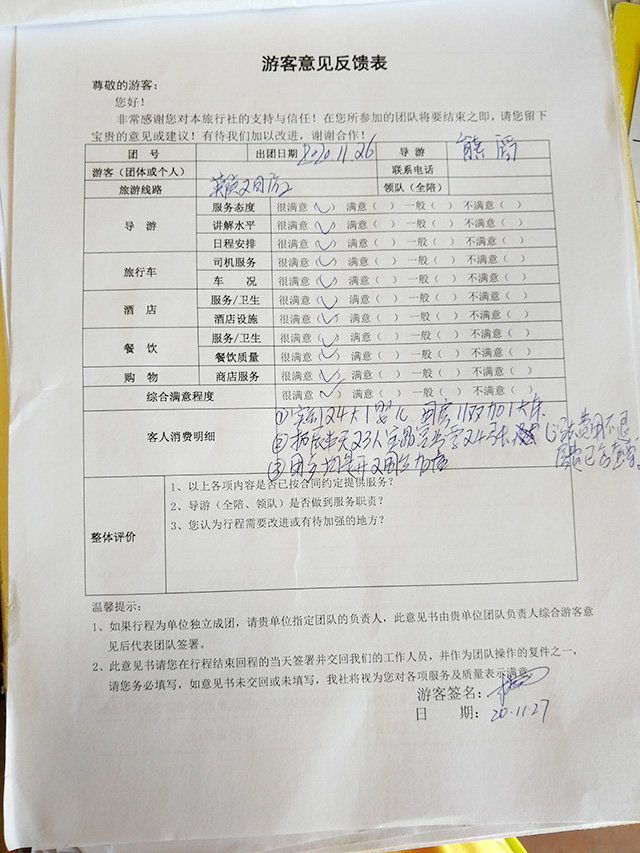 游客意见反馈表
尊敬的游客：
您好！
非常感谢您对本旅行社的支持与信任！在您所参加的团队将要结束之即，请您留下
宝贵的意见或建议！有待我们加以改进，谢谢合作！
团 号 出团日期 2020.11.26 导 游 熊
游客（团体或个人） 联系电话
旅游线路 领队（全陪）
导 游 服务态度 很满意（✓） 满意（ ） 一般（ ） 不满意（ ）
讲解水平 很满意（✓） 满意（ ） 一般（ ） 不满意（ ）
日程安排 很满意（✓） 满意（ ） 一般（ ） 不满意（ ）
旅行车 司机服务 很满意（✓） 满意（ ） 一般（ ） 不满意（ ）
车 况 很满意（✓） 满意（ ） 一般（ ） 不满意（ ）
酒 店 服务/卫生 很满意（✓） 满意（ ） 一般（ ） 不满意（ ）
酒店设施 很满意（✓） 满意（ ） 一般（ ） 不满意（ ）
餐 饮 服务/卫生 很满意（✓） 满意（ ） 一般（ ） 不满意（ ）
餐饮质量 很满意（✓） 满意（ ） 一般（ ） 不满意（ ）
购 物 商店服务 很满意（✓） 满意（ ） 一般（ ） 不满意（ ）
综合满意程度 很满意（✓） 满意（ ） 一般（ ） 不满意（ ）
客人消费明细
①实到24大1婴儿 用房11双加1大床
② 23人 24
③用
费用不退
整体评价
1、以上各项内容是否已按合同约定提供服务？
2、导游（全陪、领队）是否做到服务职责？
3、您认为行程需要改进或有待加强的地方？
温馨提示：
1、如果行程为单位独立成团，请贵单位指定团队的负责人，此意见书由贵单位团队负责人综合游客意
见后代表团队签署。
2、此意见书请您在行程结束回程的当天签署并交回我们的工作人员，并作为团队操作的复件之一，
请您务必填写，如意见书未交回或未填写，我社将视为您对各项服务及质量表示满意。
游客签名：
日 期：20.11.27